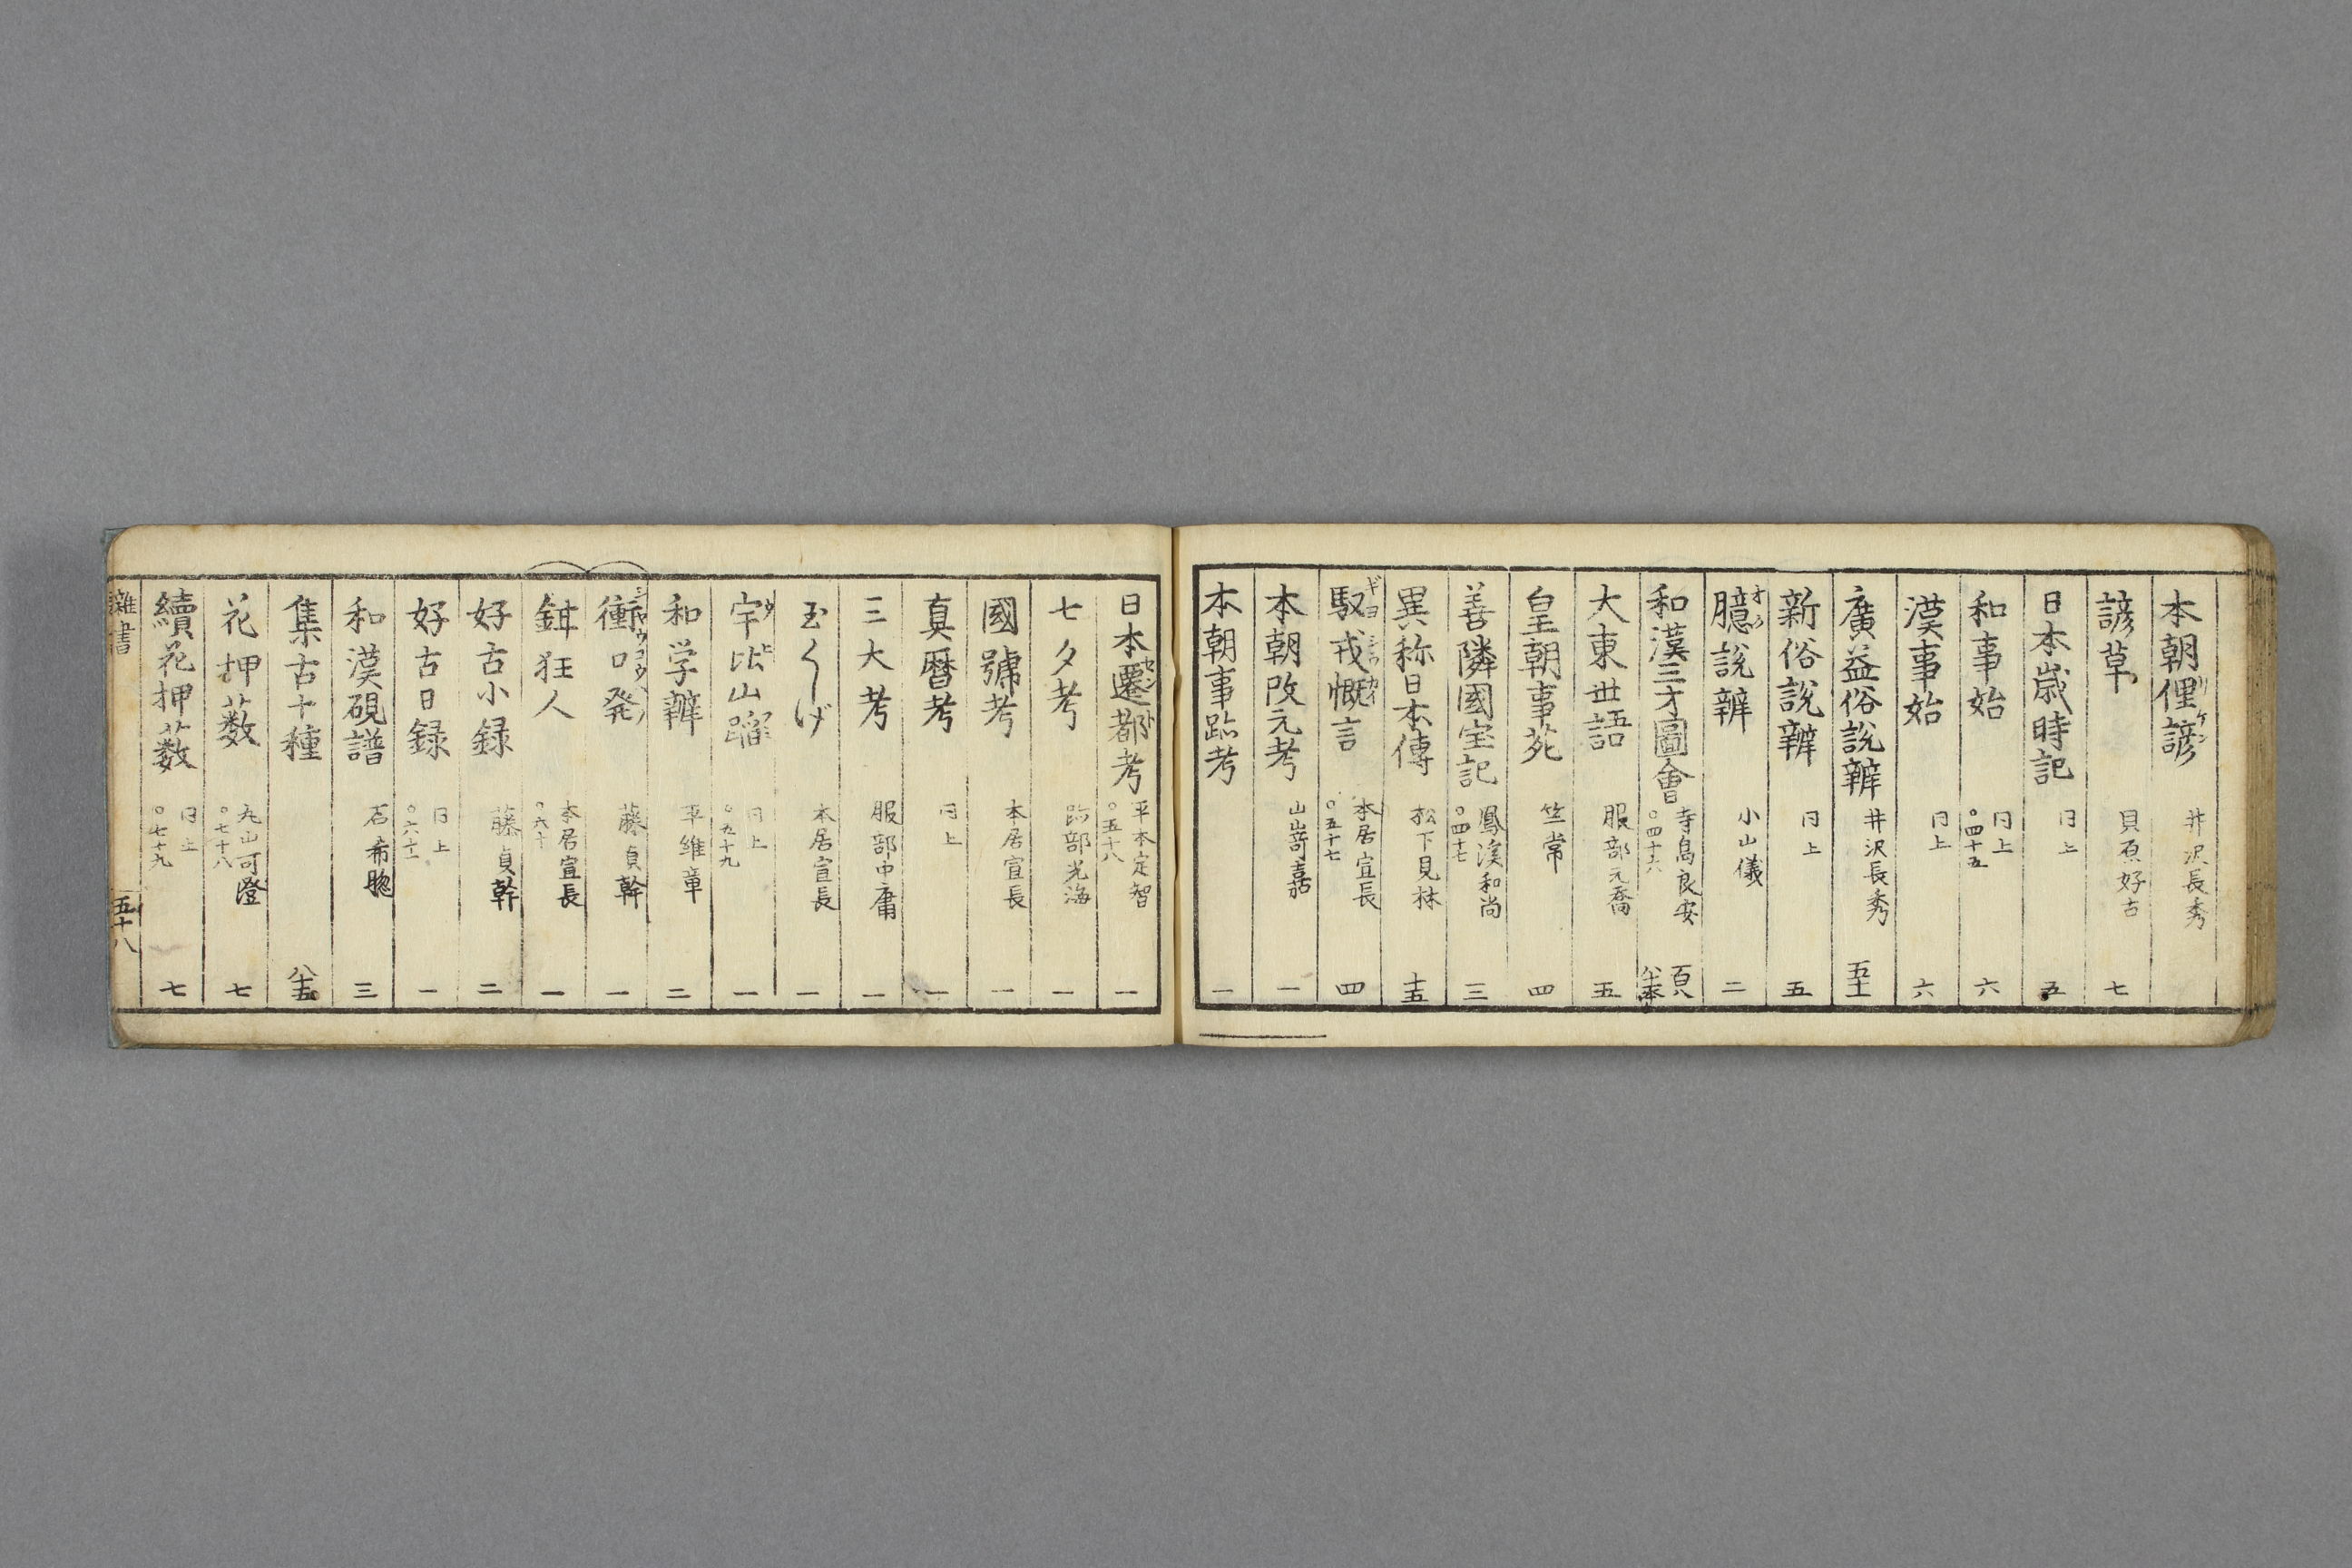 本朝俚諺 井沢長秀
諺草 貝原好古 七
日本歳時記 同上 五
和事始 同上 ○四十五 六
漢事始 同上 六
廣益俗説辨 井沢長秀 五十
新俗説辨 同上 五
臆説辨 小山儀 二
和漢三才圖會 寺島良安 ○四十六 百八
大東世語 服部元喬 五
皇朝事苑 竺常 四
善隣國宝記 鳳渓和尚 ○四十七 三
異称日本傳 松下見林 十五
馭戎慨言 本居宣長 ○五十七 四
本朝改元考 山嵜嘉 一
本朝事跡考 一
日本遷都考 平本定智 ○五十八 一
七夕考 跡部光海 一
國號考 本居宣長 一
真暦考 同上 一
三大考 服部中庸 一
玉くしげ 本居宣長 一
宇比山踏 同上 ○五十九 一
和学辨 平維章 二
衝口発 藤貞幹 一
鉗狂人 本居宣長 ○六十 一
好古小録 藤貞幹 二
好古日録 同上 ○六十一 一
和漢硯譜 石希聰 三
集古十種 八十五
花押藪 丸山可澄 ○七十八 七
續花押藪 同上 ○七十九 七
雜書 五十八